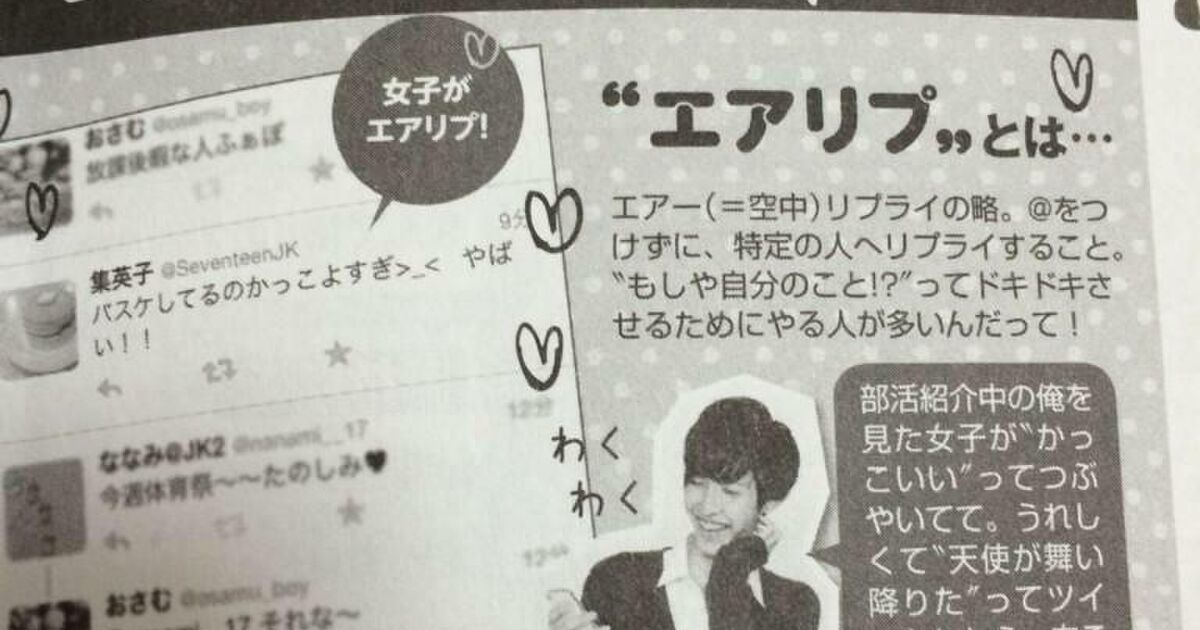 女子が
エアリプ!
おさむ @osamu_boy
放課後暇な人ふぁぼ
9分
集英子 @SeventeenJK
バスケしてるのかっこよすぎ>_< やば
い！！
12分
ななみ@JK2 @nanami__17
今週体育祭〜〜たのしみ♥
おさむ @osamu_boy
17 それな〜
“エアリプ”とは…
エアー(＝空中)リプライの略。@をつ
けずに、特定の人へリプライすること。
〝もしや自分のこと!?〟ってドキドキさ
せるためにやる人が多いんだって！
わく
わく
部活紹介中の俺を
見た女子が〝かっ
こいい〟ってつぶ
やいてて。うれし
くて〝天使が舞い
降りた〟ってツイ